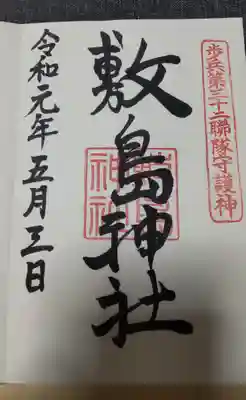 歩兵第三十二聯隊守護神
敷島神社
令和元年五月三日